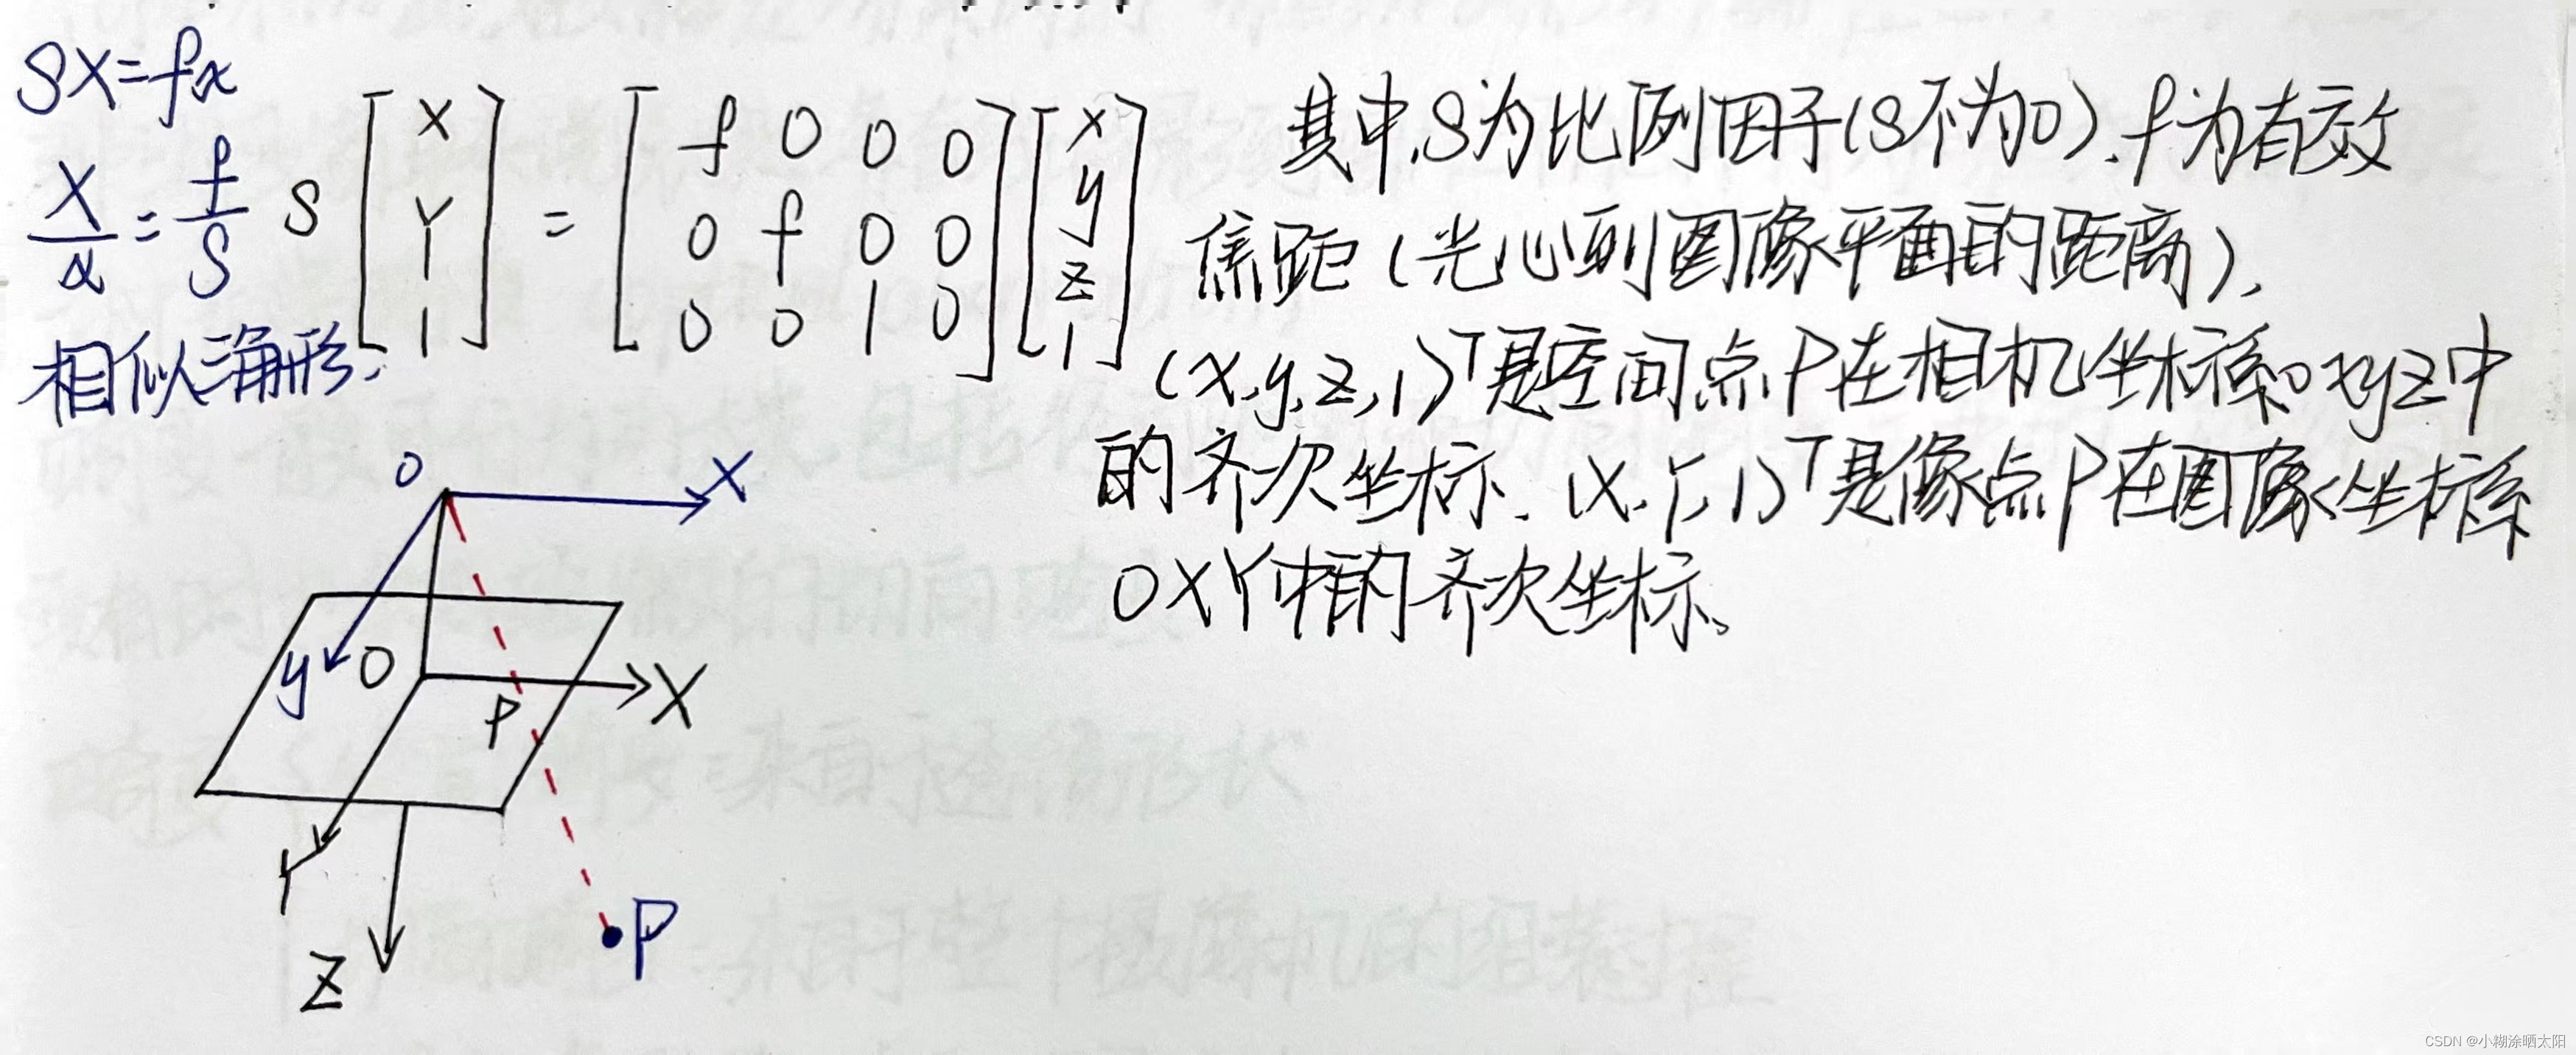 SX=fx
X/x = f/S
相似三角形.
S [X Y 1] = [f 0 0 0; 0 f 0 0; 0 0 1 0] [x y z 1]
其中,S为比例因子(S不为0),f为有效
焦距(光心到图像平面的距离),
(x,y,z,1)ᵀ是空间点P在相机坐标系oxyz中
的齐次坐标,(X,Y,1)ᵀ是像点P在图像坐标系
OXY中的齐次坐标、
O
X
y
O
X
P
Y
Z
P
CSDN @小糊涂晒太阳